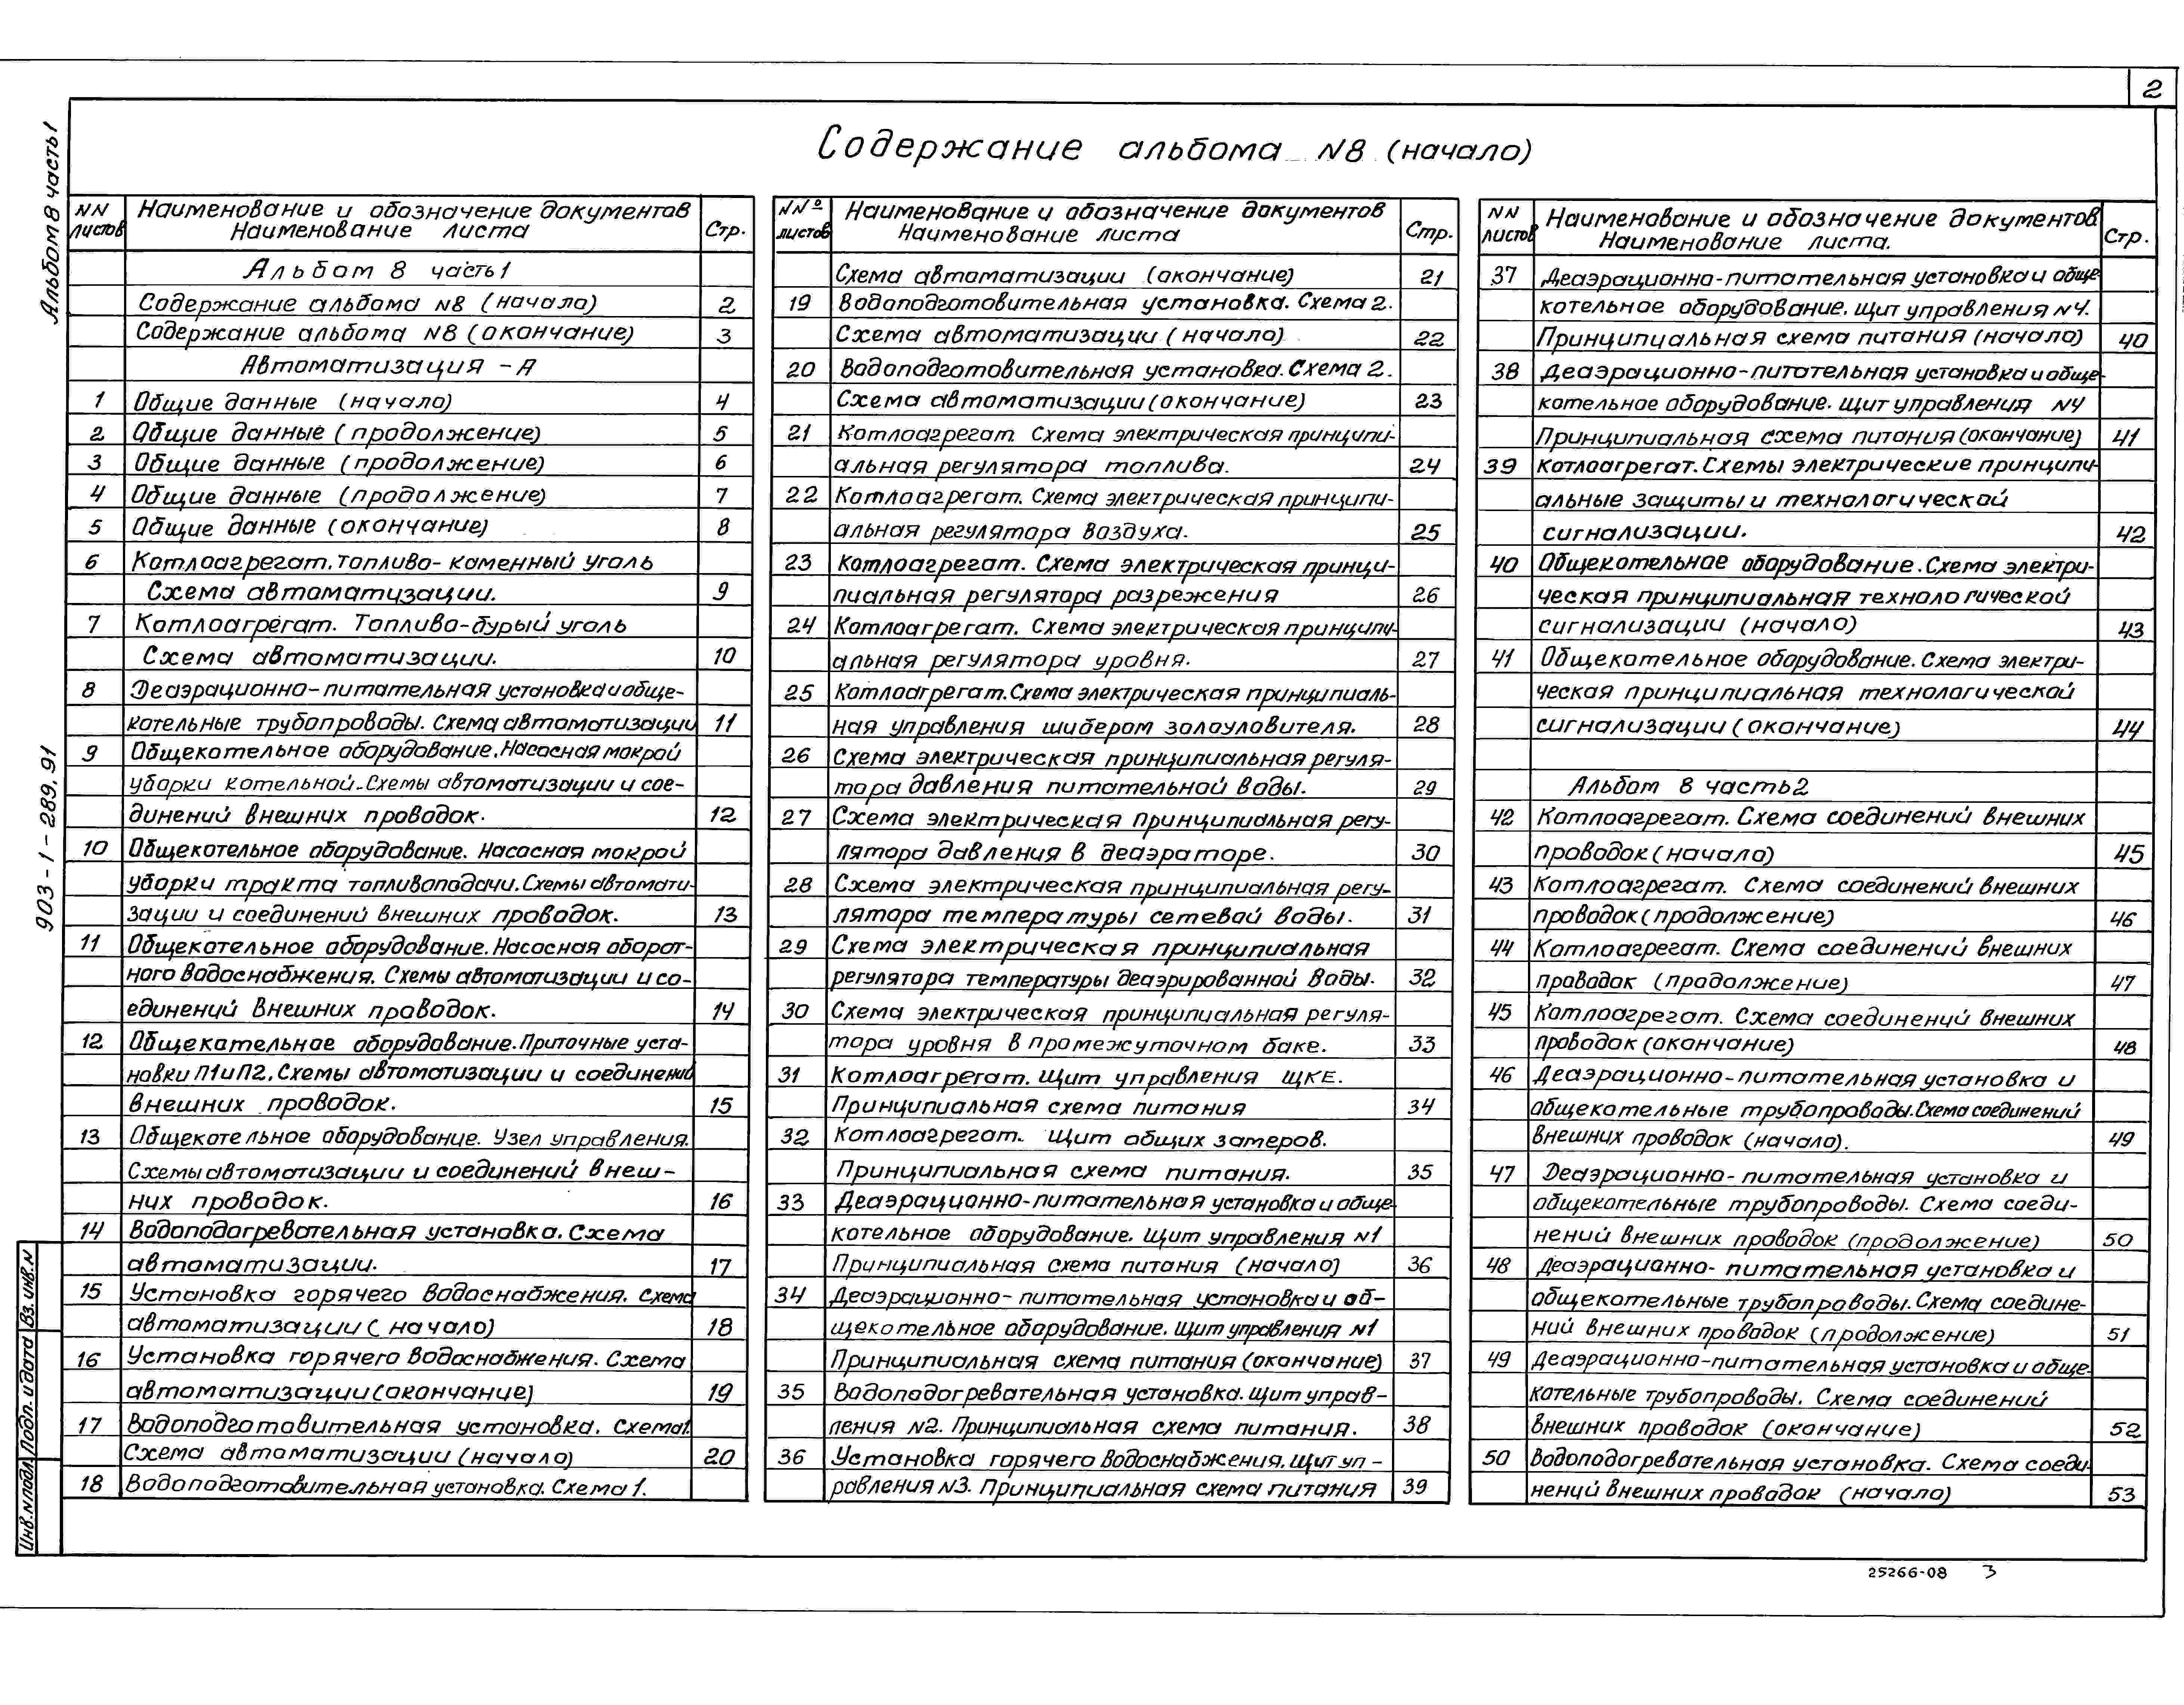 2
Альбом 8 часть 1
Содержание альбома N8 (начало)
NN листов
Наименование и обозначение документов
Наименование листа
Стр.
Альбом 8 часть 1
Содержание альбома N8 (начало) 2
Содержание альбома N8 (окончание) 3
Автоматизация - А
1 Общие данные (начало) 4
2 Общие данные (продолжение) 5
3 Общие данные (продолжение) 6
4 Общие данные (продолжение) 7
5 Общие данные (окончание) 8
6 Котлоагрегат. Топливо- каменный уголь
Схема автоматизации. 9
7 Котлоагрегат. Топливо-бурый уголь
Схема автоматизации. 10
8 Деаэрационно-питательная установка и обще-
котельные трубопроводы. Схема автоматизации 11
9 Общекотельное оборудование. Насосная мокрой
уборки котельной. Схемы автоматизации и сое-
динений внешних проводок. 12
10 Общекотельное оборудование. Насосная мокрой
уборки тракта топливоподачи. Схемы автомати-
зации и соединений внешних проводок. 13
11 Общекотельное оборудование. Насосная оборот-
ного водоснабжения. Схемы автоматизации и со-
единений внешних проводок. 14
12 Общекотельное оборудование. Приточные уста-
новки П1 и П2. Схемы автоматизации и соединений
внешних проводок. 15
13 Общекотельное оборудование. Узел управления.
Схемы автоматизации и соединений внеш-
них проводок. 16
14 Водоподогревательная установка. Схема
автоматизации. 17
15 Установка горячего водоснабжения. Схема
автоматизации (начало) 18
16 Установка горячего водоснабжения. Схема
автоматизации (окончание) 19
17 Водоподготовительная установка. Схема1.
Схема автоматизации (начало) 20
18 Водоподготовительная установка. Схема 1.
NNº листов
Наименование и обозначение документов
Наименование листа
Стр.
Схема автоматизации (окончание) 21
19 Водоподготовительная установка. Схема 2.
Схема автоматизации (начало) 22
20 Водоподготовительная установка. Схема 2.
Схема автоматизации (окончание) 23
21 Котлоагрегат. Схема электрическая принципи-
альная регулятора топлива. 24
22 Котлоагрегат. Схема электрическая принципи-
альная регулятора воздуха. 25
23 Котлоагрегат. Схема электрическая принци-
пиальная регулятора разрежения 26
24 Котлоагрегат. Схема электрическая принципи-
альная регулятора уровня. 27
25 Котлоагрегат. Схема электрическая принципиаль-
ная управления шибером золоуловителя. 28
26 Схема электрическая принципиальная регуля-
тора давления питательной воды. 29
27 Схема электрическая принципиальная регу-
лятора давления в деаэраторе. 30
28 Схема электрическая принципиальная регу-
лятора температуры сетевой воды. 31
29 Схема электрическая принципиальная
регулятора температуры деаэрированной воды. 32
30 Схема электрическая принципиальная регуля-
тора уровня в промежуточном баке. 33
31 Котлоагрегат. Щит управления ЩКЕ.
Принципиальная схема питания 34
32 Котлоагрегат. Щит общих замеров.
Принципиальная схема питания. 35
33 Деаэрационно-питательная установка и обще-
котельное оборудование. Щит управления N1
Принципиальная схема питания (начало) 36
34 Деаэрационно- питательная установка и об-
щекотельное оборудование. Щит управления N1
Принципиальная схема питания (окончание) 37
35 Водоподогревательная установка. Щит управ-
ления N2. Принципиальная схема питания. 38
36 Установка горячего водоснабжения. Щит уп-
равления N3. Принципиальная схема питания 39
NN листов
Наименование и обозначение документов
Наименование листа.
Стр.
37 Деаэрационно-питательная установка и обще-
котельное оборудование. Щит управления N4.
Принципиальная схема питания (начало) 40
38 Деаэрационно-питательная установка и обще-
котельное оборудование. Щит управления N4
Принципиальная схема питания (окончание) 41
39 Котлоагрегат. Схемы электрические принципи-
альные защиты и технологической
сигнализации. 42
40 Общекотельное оборудование. Схема электри-
ческая принципиальная технологической
сигнализации (начало) 43
41 Общекотельное оборудование. Схема электри-
ческая принципиальная технологической
сигнализации (окончание) 44
Альбом 8 часть2
42 Котлоагрегат. Схема соединений внешних
проводок (начало) 45
43 Котлоагрегат. Схема соединений внешних
проводок (продолжение) 46
44 Котлоагрегат. Схема соединений внешних
проводок (продолжение) 47
45 Котлоагрегат. Схема соединений внешних
проводок (окончание) 48
46 Деаэрационно-питательная установка и
общекотельные трубопроводы. Схема соединений
внешних проводок (начало). 49
47 Деаэрационно- питательная установка и
общекотельные трубопроводы. Схема соеди-
нений внешних проводок (продолжение) 50
48 Деаэрационно- питательная установка и
общекотельные трубопроводы. Схема соедине-
ний внешних проводок (продолжение) 51
49 Деаэрационно-питательная установка и обще-
котельные трубопроводы. Схема соединений
внешних проводок (окончание) 52
50 Водоподогревательная установка. Схема соеди-
нений внешних проводок (начало) 53
903-1-289.91
Вз. инв. N
Подп. и дата
Инв. N подл.
25266-08 3